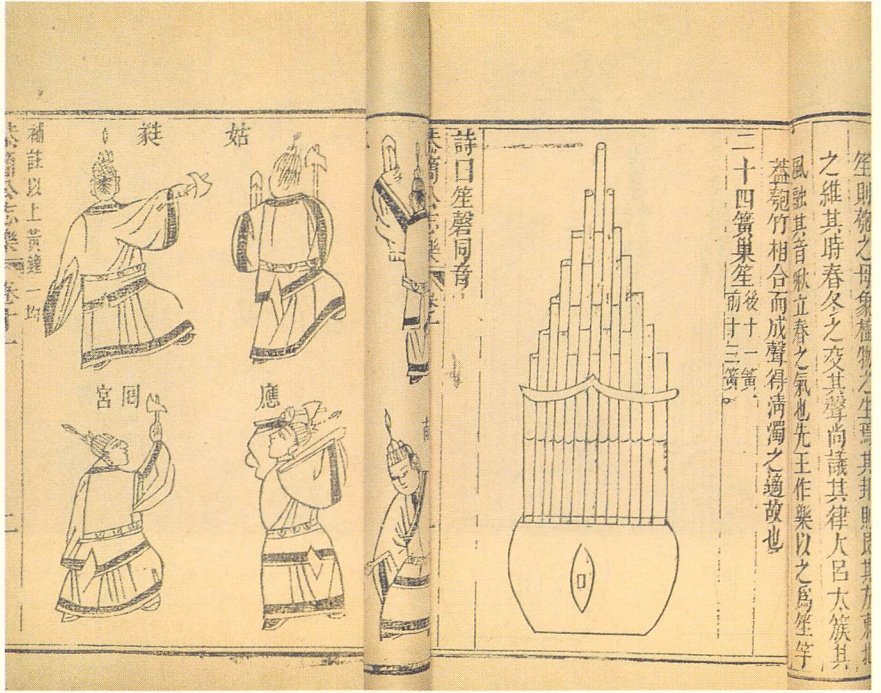 笙則匏之母象植物之生焉其
之維其時春冬之交其聲尚議其律大呂太簇其
風融其音啾立春之氣也先王作樂以之爲笙竽
蓋匏竹相合而成聲得淸濁之適故也
二十四簧巢笙
後十一簧
前十三簧
詩曰笙磬同音
恭簡公志樂
姑
蕤
應
囘宮
補註以上黃鐘一均
恭簡公志樂 卷十一
二